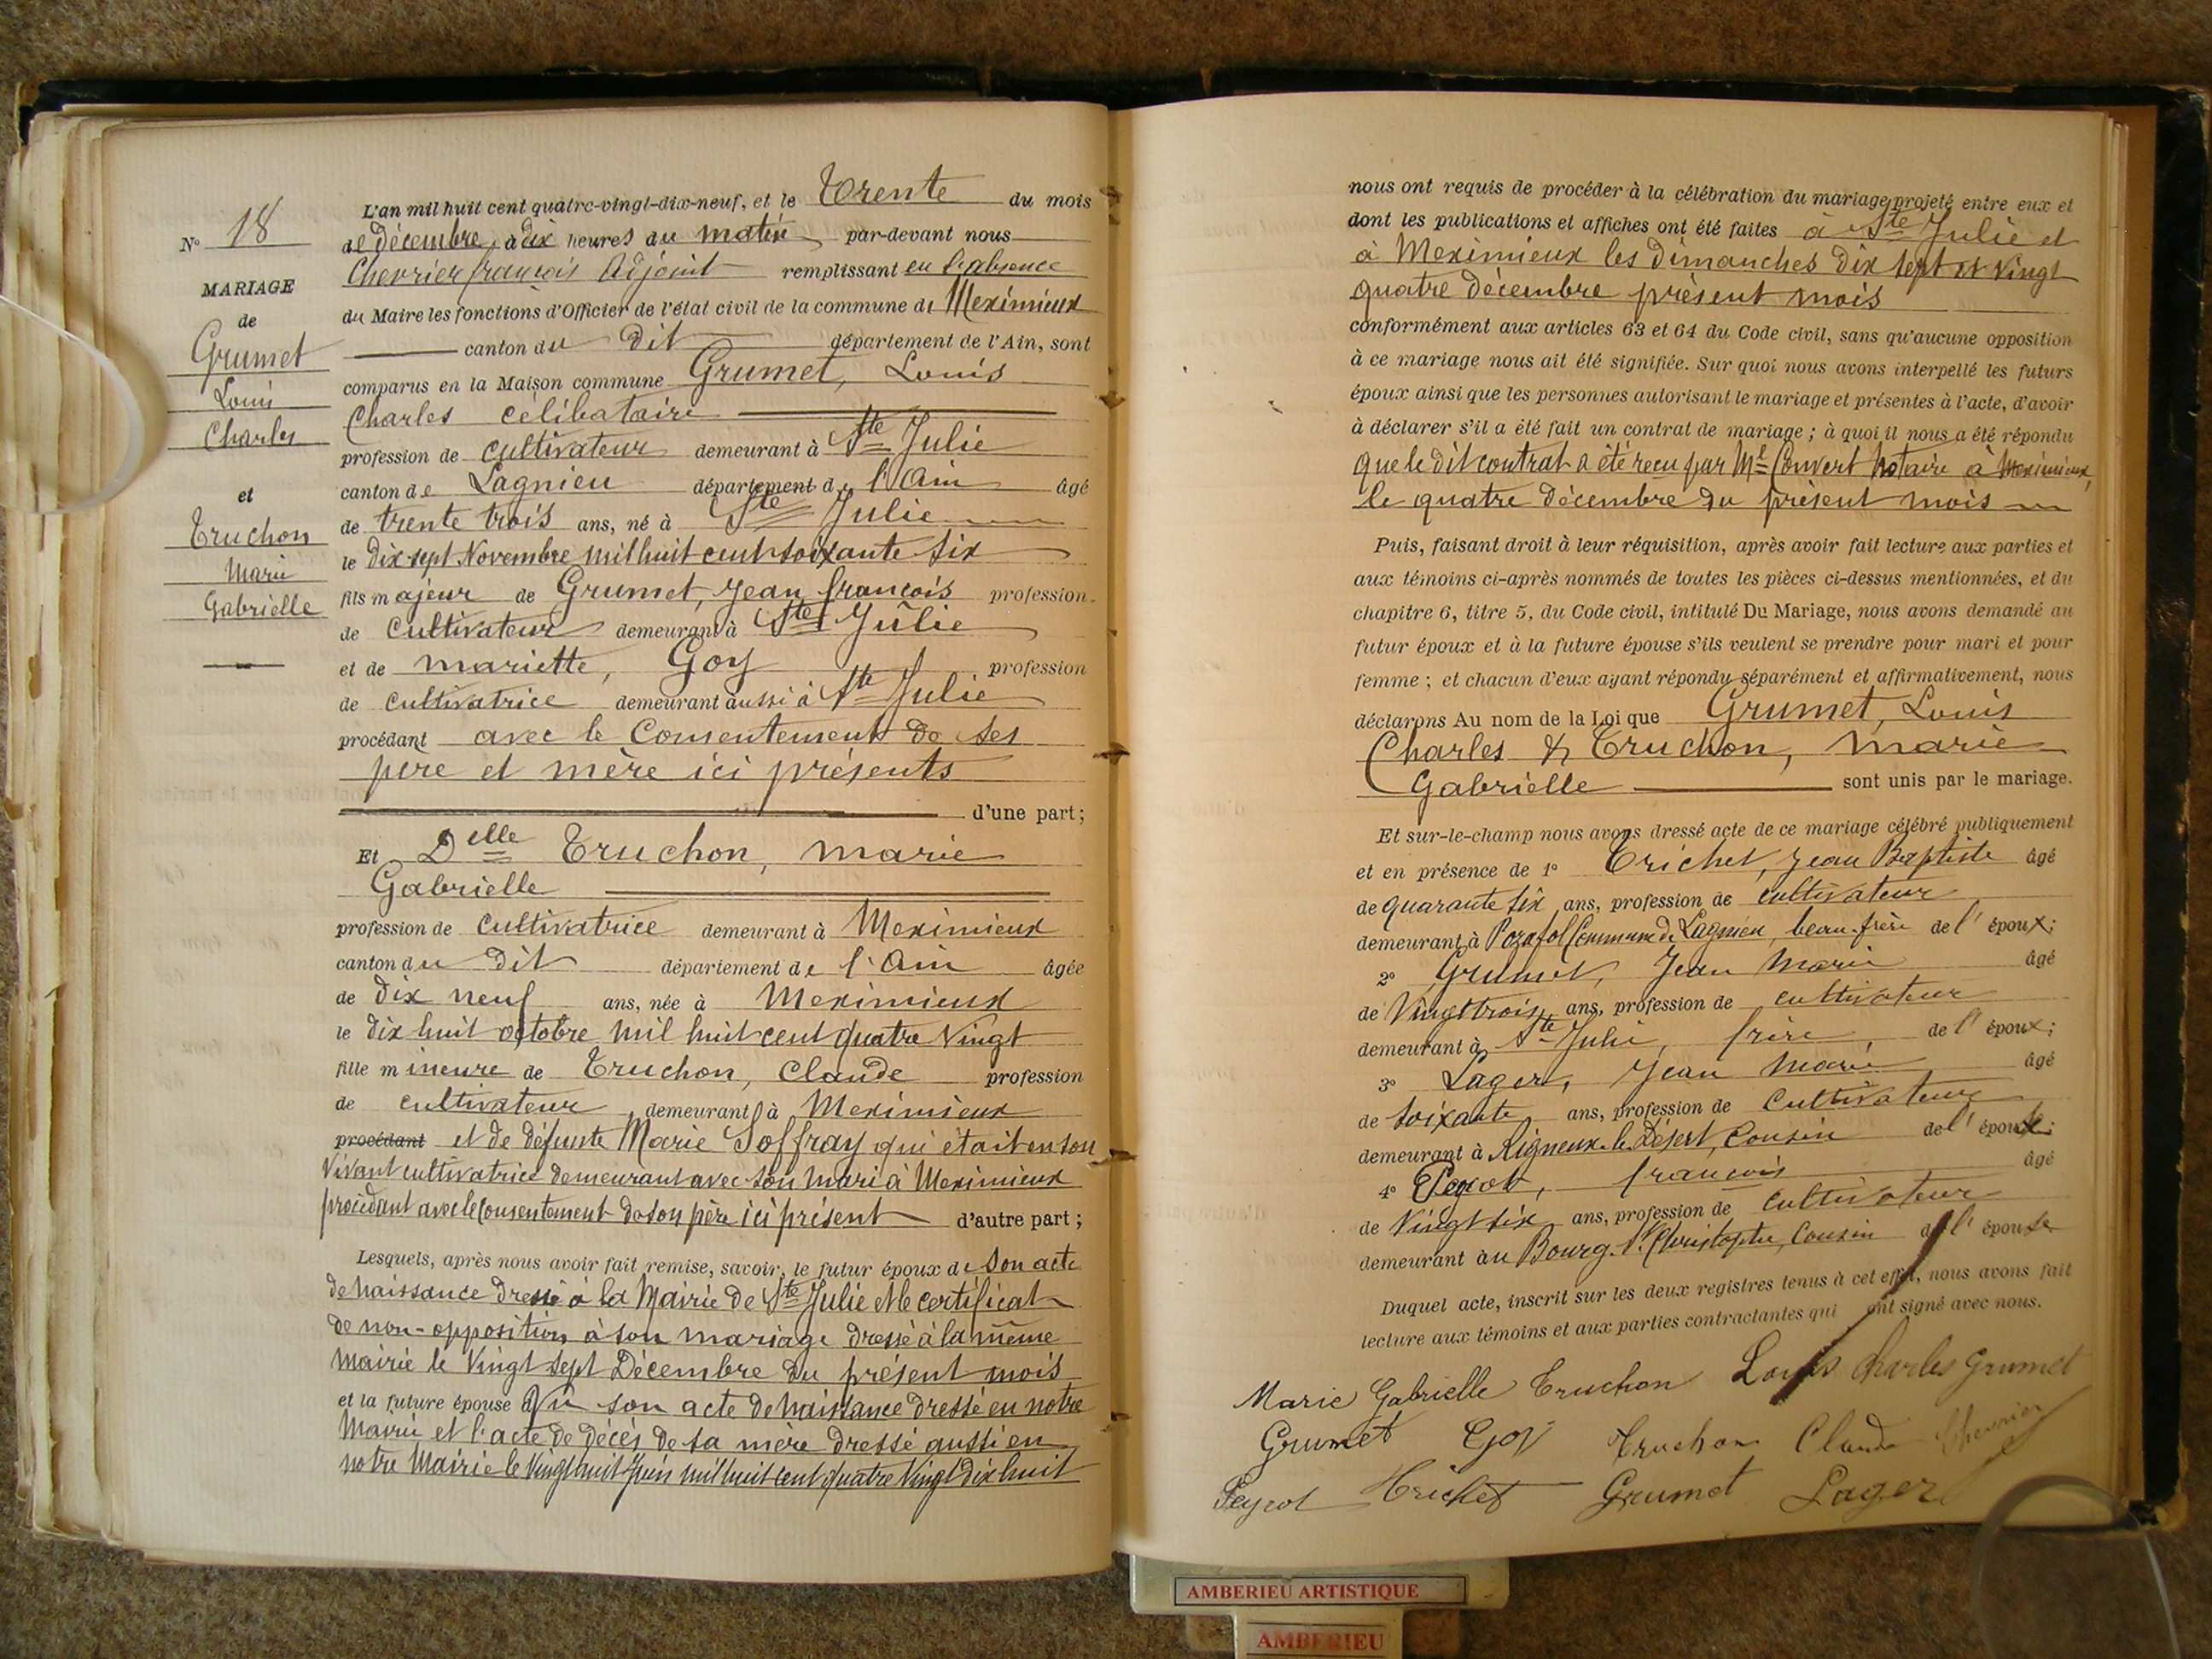 N° 18
MARIAGE
de
Grumet
Louis
Charles
et
Truchon
Marie
Gabrielle
L'an mil huit cent quatre-vingt-dix-neuf, et le Trente du mois
de décembre, à dix heures du matin par-devant nous
Chevrier françois Adjoint remplissant en l'absence
du Maire les fonctions d'Officier de l'état civil de la commune de Meximieux
canton du Dit département de l'Ain, sont
comparus en la Maison commune Grumet, Louis
Charles célibataire
profession de cultivateur demeurant à Ste Julie
canton de Lagnieu département de l'Ain âgé
de trente trois ans, né à Ste Julie
le dix sept Novembre mil huit cent soixante six
fils majeur de Grumet, Jean françois profession
de cultivateur demeurant à Ste Julie
et de mariette, Goy profession
de cultivatrice demeurant aussi à Ste Julie
procédant avec le Consentement de ses
père et mère ici présents
d'une part;
Et Delle Truchon, marie
Gabrielle
profession de cultivatrice demeurant à Meximieux
canton du dit département de l'Ain âgée
de dix neuf ans, née à Meximieux
le dix huit octobre mil huit cent quatre Vingt
fille mineure de Truchon, Claude profession
de cultivateur demeurant à Meximieux
procédant et de défunte Marie Soffray qui était en son
Vivant cultivatrice demeurant avec son mari à Meximieux
procédant avec le Consentement de son père ici présent d'autre part;
Lesquels, après nous avoir fait remise, savoir, le futur époux de son acte
de naissance dressé à la Mairie de Ste Julie et le certificat
de non-opposition à son mariage dressé à la même
Mairie le Vingt sept Décembre du présent mois
et la future épouse Vu son acte de naissance dressé en notre
Mairie et l'acte de décès de sa mère dressé aussi en
notre Mairie le Vingt huit Juin mil huit cent quatre Vingt dix huit
nous ont requis de procéder à la célébration du mariage projeté entre eux et
dont les publications et affiches ont été faites à Ste Julie et
à Meximieux les dimanches dix sept et Vingt
quatre décembre présent mois
conformément aux articles 63 et 64 du Code civil, sans qu'aucune opposition
à ce mariage nous ait été signifiée. Sur quoi nous avons interpellé les futurs
époux ainsi que les personnes autorisant le mariage et présentes à l'acte, d'avoir
à déclarer s'il a été fait un contrat de mariage; à quoi il nous a été répondu
que le dit contrat a été reçu par Me Convert Notaire à Meximieux,
le quatre décembre du présent mois
Puis, faisant droit à leur réquisition, après avoir fait lecture aux parties et
aux témoins ci-après nommés de toutes les pièces ci-dessus mentionnées, et du
chapitre 6, titre 5, du Code civil, intitulé Du Mariage, nous avons demandé au
futur époux et à la future épouse s'ils veulent se prendre pour mari et pour
femme; et chacun d'eux ayant répondu séparément et affirmativement, nous
déclarons Au nom de la Loi que Grumet, Louis
Charles & Truchon, marie
Gabrielle sont unis par le mariage.
Et sur-le-champ nous avons dressé acte de ce mariage célébré publiquement
et en présence de 1° Trichet, Jean Baptiste âgé
de quarante six ans, profession de cultivateur
demeurant à Pozafol Commune de Lagnieu, beau-frère de l'époux;
2° Grumet, Jean Marie âgé
de Vingt trois ans, profession de cultivateur
demeurant à Ste Julie, frère, de l'époux;
3° Lager, Jean Marie âgé
de soixante ans, profession de Cultivateur
demeurant à Rigneux-le-Désert, Cousin de l'épouse;
4° Peyrot, françois âgé
de Vingt six ans, profession de cultivateur
demeurant au Bourg-St Christophe, Cousin de l'épouse
Duquel acte, inscrit sur les deux registres tenus à cet effet, nous avons fait
lecture aux témoins et aux parties contractantes qui ont signé avec nous.
Marie Gabrielle Truchon Louis Charles Grumet
Grumet Goy Truchon Claude Chevrier
Peyrot Trichet Grumet Lager
AMBERIEU ARTISTIQUE
AMBERIEU